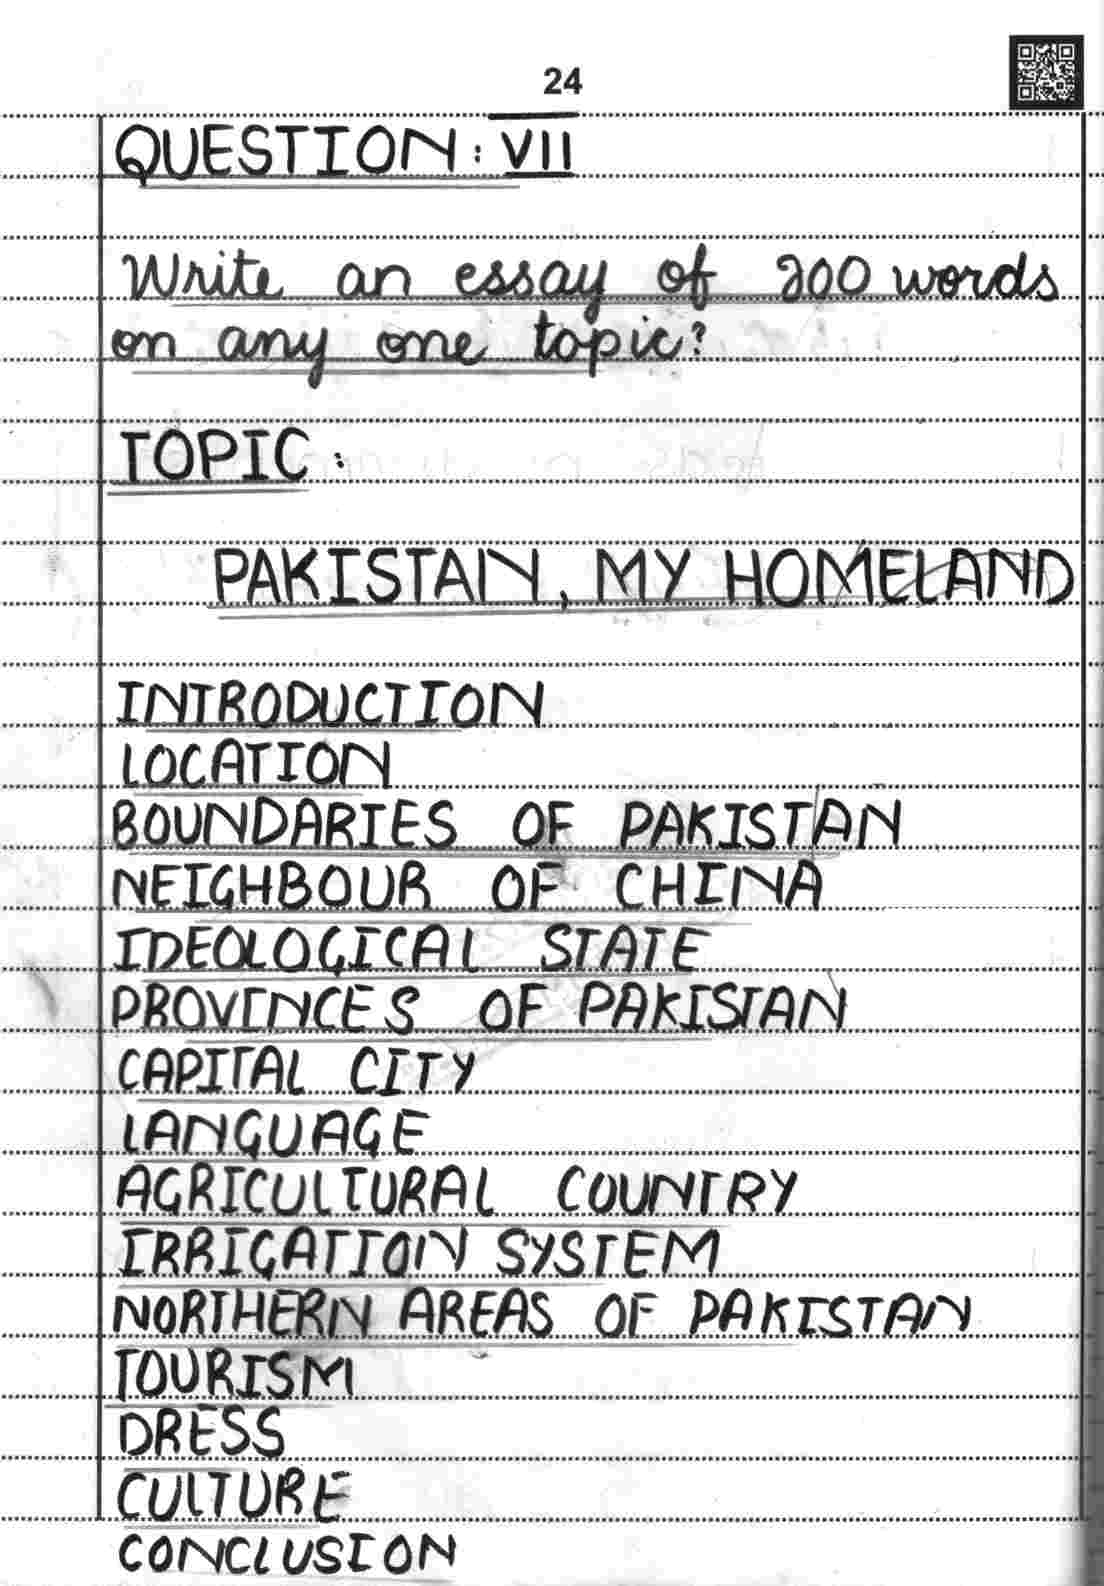 24
QUESTION: VII
Write an essay of 200 words
on any one topic?
TOPIC:
PAKISTAN, MY HOMELAND
INTRODUCTION
LOCATION
BOUNDARIES OF PAKISTAN
NEIGHBOUR OF CHINA
IDEOLOGICAL STATE
PROVINCES OF PAKISTAN
CAPITAL CITY
LANGUAGE
AGRICULTURAL COUNTRY
IRRIGATION SYSTEM
NORTHERN AREAS OF PAKISTAN
TOURISM
DRESS
CULTURE
CONCLUSION